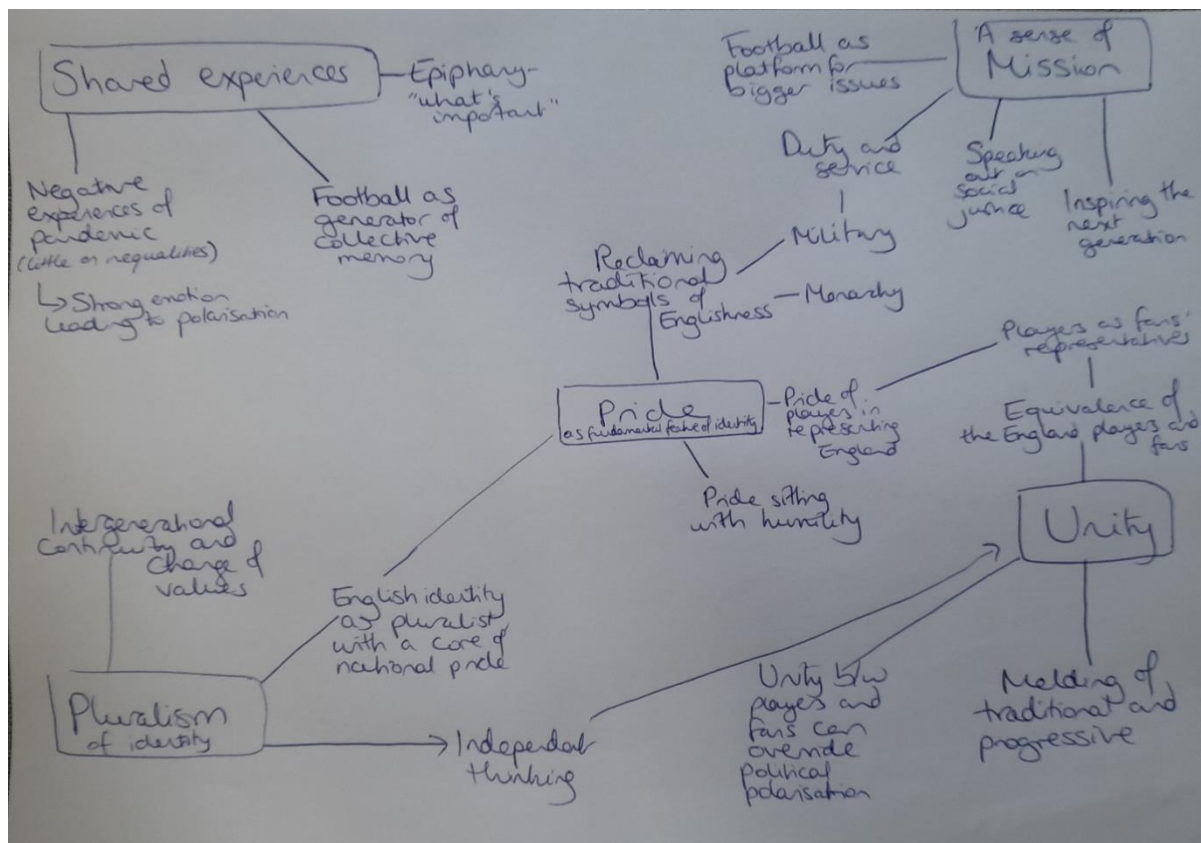 Shared experiences
Epiphany-
"what's
important"
Negative
experiences of
pandemic
(little on inequalities)
↳ Strong emotion
leading to polarisation
Football as
generator of
collective
memory
A sense of
Mission
Football as
platform for
bigger issues
Duty and
service
Speaking
out on
social
justice
Inspiring the
next
generation
Military
Reclaiming
traditional
symbols of
Englishness
Monarchy
Pride
as fundamental feature of identity
Pride of
players in
representing
England
Players as fans'
representatives
Equivalence of
the England players and
fans
Pride sitting
with humility
Unity
Intergenerational
continuity and
change of
values
English identity
as pluralist,
with a core of
national pride
Pluralism
of identity
Independent
thinking
Unity b/w
players and
fans can
override
political
polarisation
Melding of
traditional and
progressive